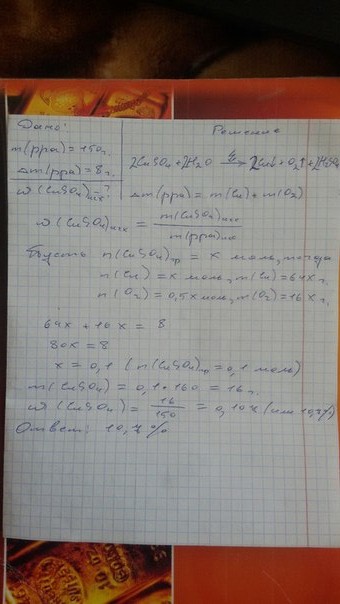 Дано:
Решение
m(рра) = 150г.
2CuSO4 + 2H2O → 2Cu↓ + O2↑ + 2H2SO4
Δm(рра) = 8г.
ω(CuSO4)исх - ?
Δm(рра) = m(Cu) + m(O2)
ω(CuSO4)исх = m(CuSO4)исх / m(рра)исх
Пусть n(CuSO4)пр = x моль, тогда
n(Cu) = x моль, m(Cu) = 64x г.
n(O2) = 0,5x моль, m(O2) = 16x г.
64x + 16x = 8
80x = 8
x = 0,1 (n(CuSO4)пр = 0,1 моль)
m(CuSO4) = 0,1•160 = 16 г.
ω(CuSO4) = 16/150 = 0,107 (или 10,7%)
Ответ: 10,7%